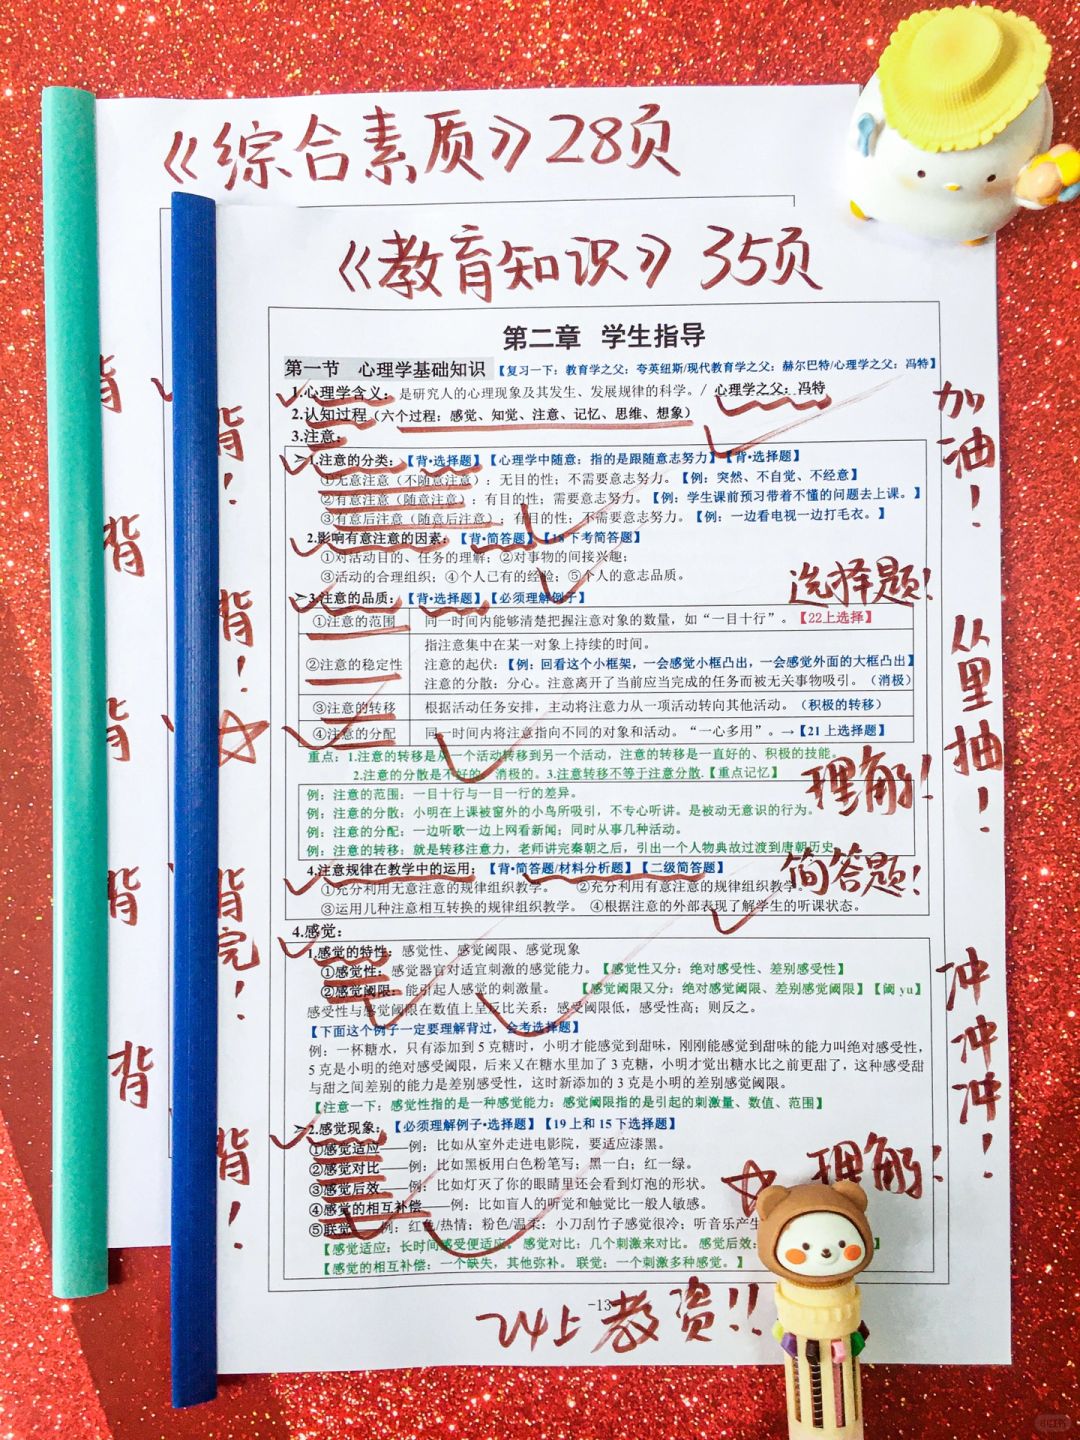 《综合素质》28页
《教育知识》35页
第二章 学生指导
第一节 心理学基础知识【复习一下：教育学之父：夸英纽斯/现代教育学之父：赫尔巴特/心理学之父：冯特】
1.心理学含义：是研究人的心理现象及其发生、发展规律的科学。/ 心理学之父：冯特
2.认知过程（六个过程：感觉、知觉、注意、记忆、思维、想象）
3.注意：
➢1.注意的分类：【背·选择题】【心理学中随意：指的是跟随意志努力】【背·选择题】
①无意注意（不随意注意）：无目的性；不需要意志努力。【例：突然、不自觉、不经意】
②有意注意（随意注意）：有目的性；需要意志努力。【例：学生课前预习带着不懂的问题去上课。】
③有意后注意（随意后注意）：有目的性；不需要意志努力。【例：一边看电视一边打毛衣。】
2.影响有意注意的因素：【背·简答题】【18下考简答题】
①对活动目的、任务的理解；②对事物的间接兴趣；
③活动的合理组织；④个人已有的经验；⑤个人的意志品质。
➢3.注意的品质：【背·选择题】【必须理解例子】
①注意的范围 同一时间内能够清楚把握注意对象的数量，如“一目十行”。【22上选择】
②注意的稳定性 指注意集中在某一对象上持续的时间。
注意的起伏：【例：回看这个小框架，一会感觉小框凸出，一会感觉外面的大框凸出】
注意的分散：分心。注意离开了当前应当完成的任务而被无关事物吸引。（消极）
③注意的转移 根据活动任务安排，主动将注意力从一项活动转向其他活动。（积极的转移）
④注意的分配 同一时间内将注意指向不同的对象和活动。“一心多用”。→【21上选择题】
重点：1.注意的转移是从一个活动转移到另一个活动，注意的转移是一直好的、积极的技能。
2.注意的分散是不好的、消极的。3.注意转移不等于注意分散.【重点记忆】
例：注意的范围：一目十行与一目一行的差异。
例：注意的分散：小明在上课被窗外的小鸟所吸引，不专心听讲。是被动无意识的行为。
例：注意的分配：一边听歌一边上网看新闻；同时从事几种活动。
例：注意的转移：就是转移注意力，老师讲完秦朝之后，引出一个人物典故过渡到唐朝历史
4.注意规律在教学中的运用：【背·简答题/材料分析题】【二级简答题】
①充分利用无意注意的规律组织教学。 ②充分利用有意注意的规律组织教学。
③运用几种注意相互转换的规律组织教学。 ④根据注意的外部表现了解学生的听课状态。
4.感觉：
1.感觉的特性：感觉性、感觉阈限、感觉现象
①感觉性：感觉器官对适宜刺激的感觉能力。【感觉性又分：绝对感受性、差别感受性】
②感觉阈限：能引起人感觉的刺激量。 【感觉阈限又分：绝对感觉阈限、差别感觉阈限】【阈 yu】
感受性与感觉阈限在数值上呈反比关系：感受阈限低，感受性高；则反之。
【下面这个例子一定要理解背过，会考选择题】
例：一杯糖水，只有添加到 5 克糖时，小明才能感觉到甜味，刚刚能感觉到甜味的能力叫绝对感受性，
5 克是小明的绝对感受阈限，后来又在糖水里加了 3 克糖，小明才觉出糖水比之前更甜了，这种感受甜
与甜之间差别的能力是差别感受性，这时新添加的 3 克是小明的差别感觉阈限。
【注意一下：感觉性指的是一种感觉能力；感觉阈限指的是引起的刺激量、数值、范围】
➢2.感觉现象：【必须理解例子·选择题】【19上和15下选择题】
①感觉适应——例：比如从室外走进电影院，要适应漆黑。
②感觉对比——例：比如黑板用白色粉笔写；黑一白；红一绿。
③感觉后效——例：比如灯灭了你的眼睛里还会看到灯泡的形状。
④感觉的相互补偿——例：比如盲人的听觉和触觉比一般人敏感。
⑤联觉——例：红色/热情；粉色/温柔；小刀刮竹子感觉很冷；听音乐产生
【感觉适应：长时间感受便适应。 感觉对比：几个刺激来对比。 感觉后效：
【感觉的相互补偿：一个缺失，其他弥补。 联觉：一个刺激多种感觉。】
-13
24上教资！！
加油！
选择题！
从里抽！
理解！
简答题！
冲冲冲！
理解！
背
背
背
背
背
背！
背！
背完！
背！